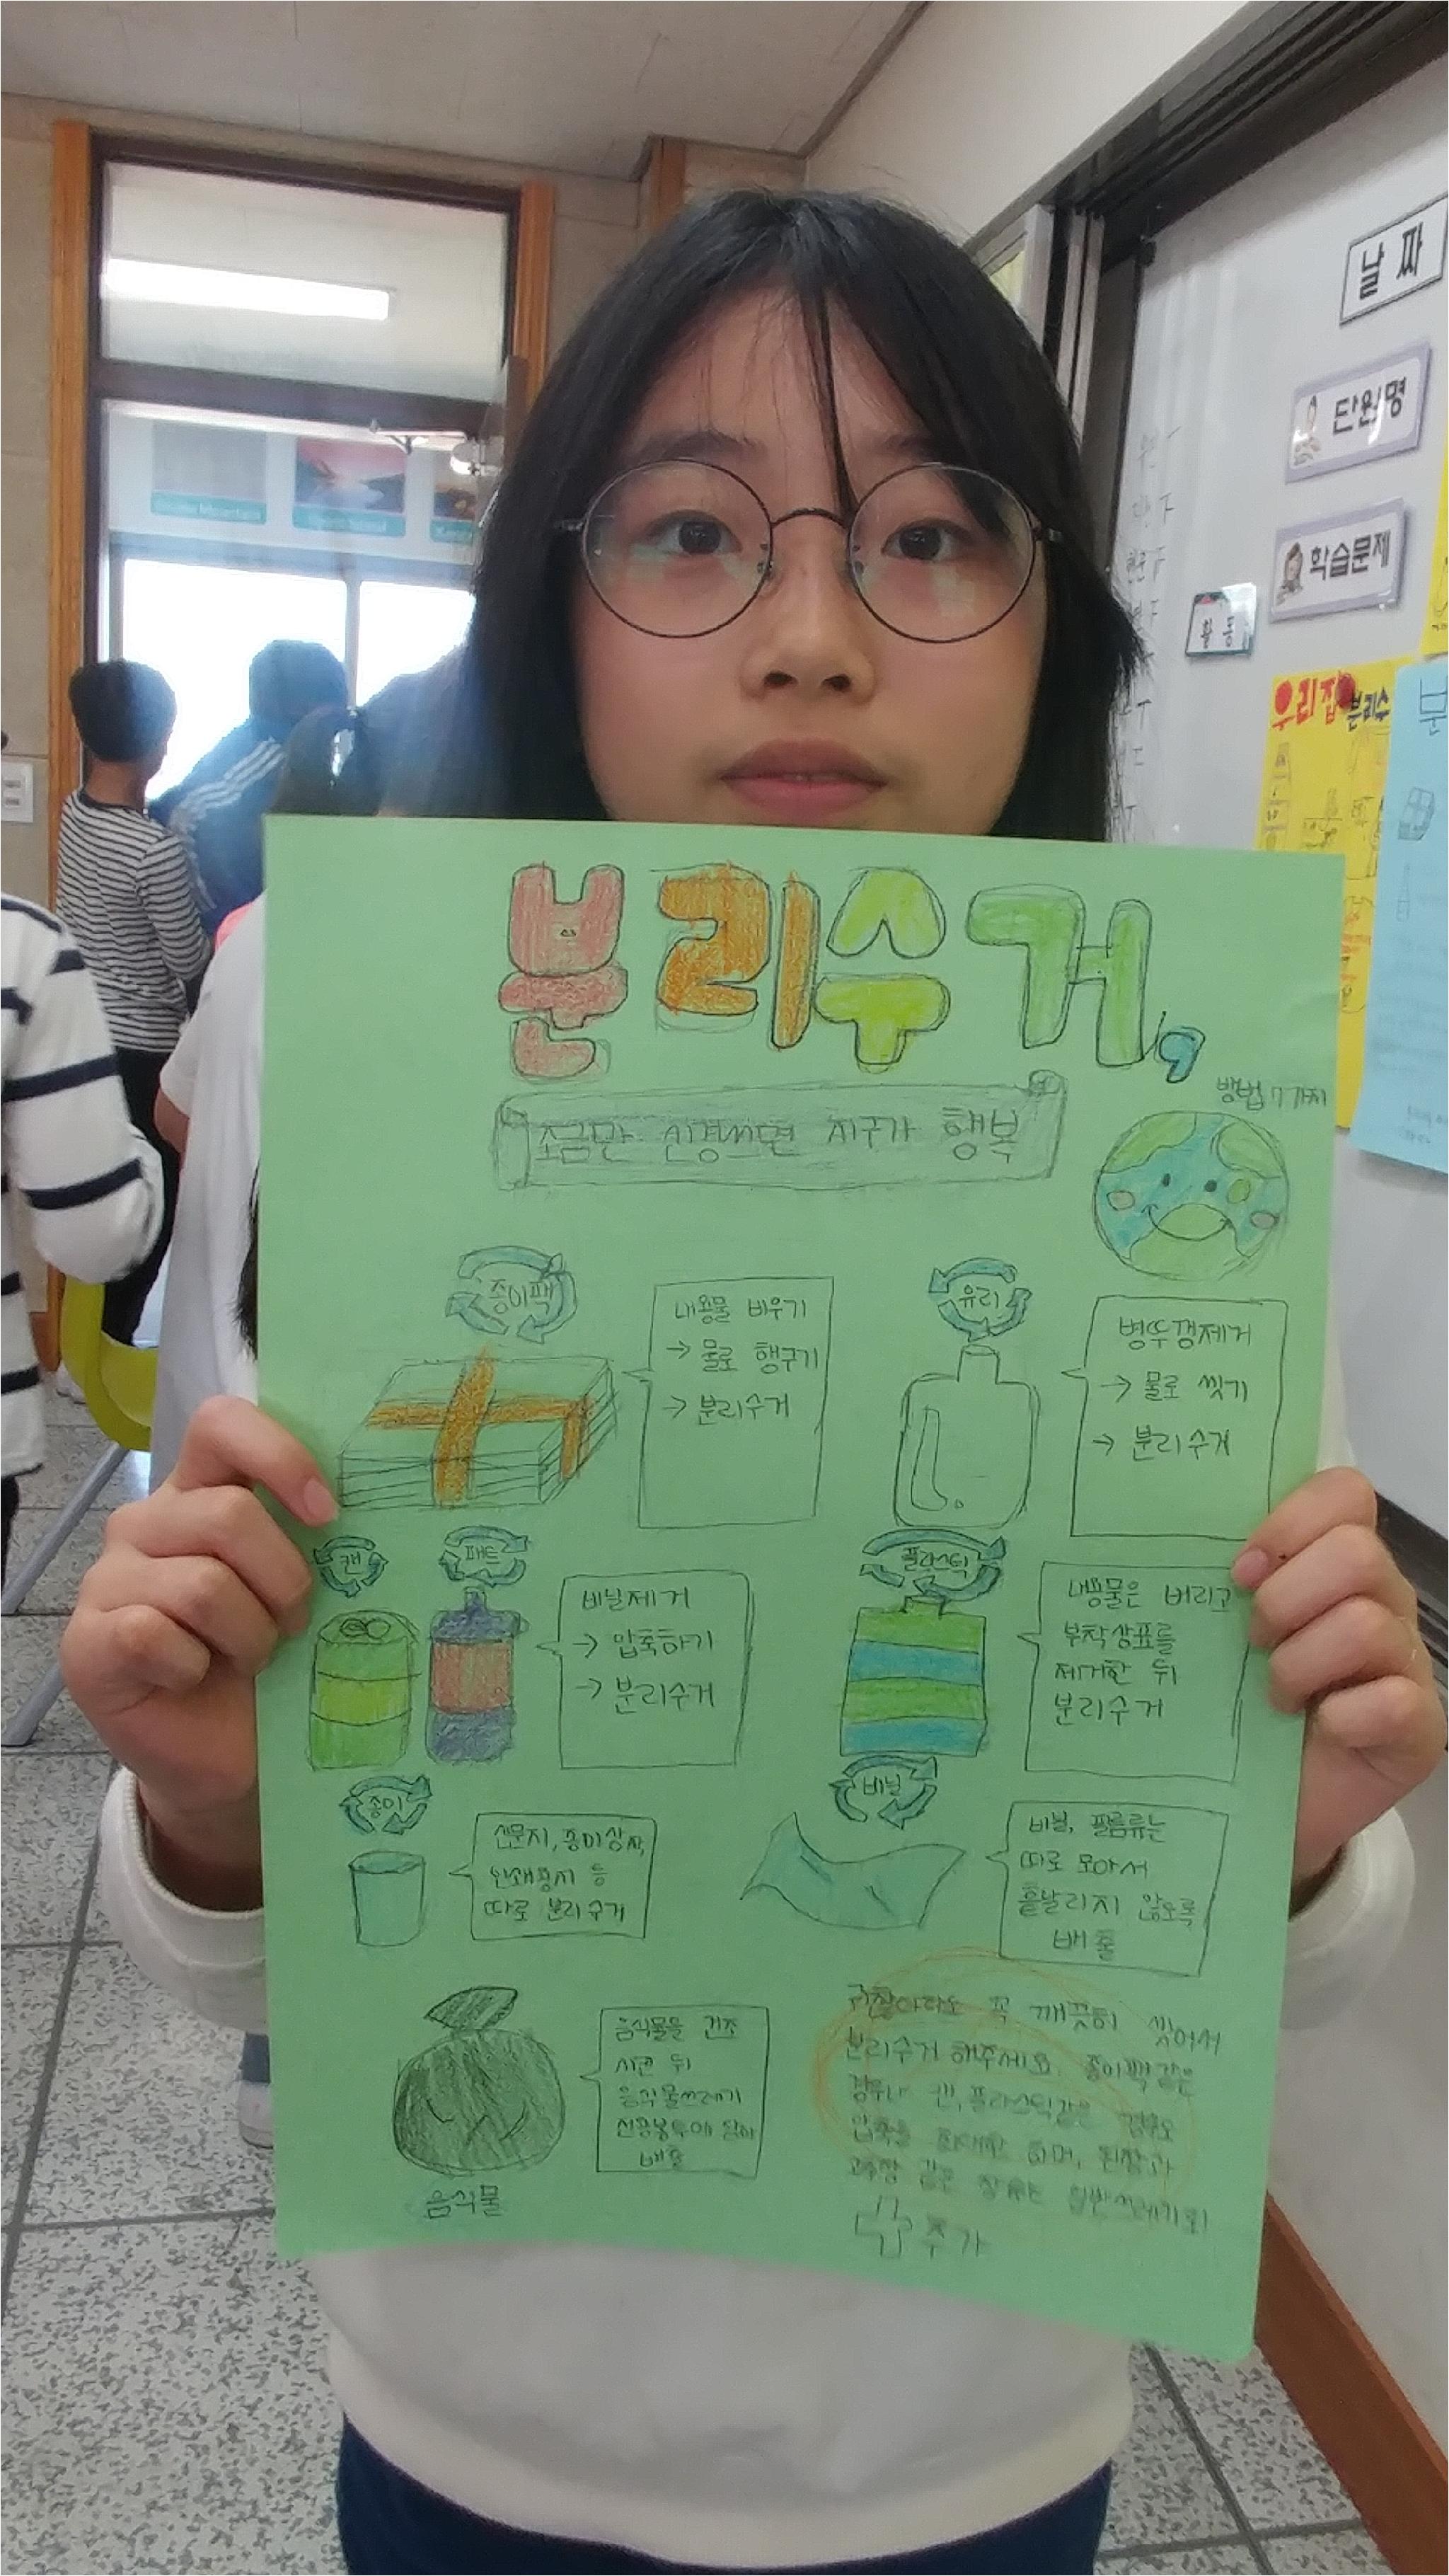 날짜
단원명
학습문제
활동
우리집 분리수
분
분리수거,
방법 7가지
조금만 신경쓰면 지구가 행복
종이팩
내용물 비우기
→ 물로 헹구기
→ 분리수거
유리
병뚜껑제거
→ 물로 씻기
→ 분리수거
캔
패트
비닐제거
→ 압축하기
→ 분리수거
플라스틱
내용물은 버리고
부착상표를
제거한 뒤
분리수거
종이
신문지, 종이상자,
인쇄용지 등
따로 분리수거
비닐
비닐, 필름류는
따로 모아서
흩날리지 않도록
배출
음식물을 건조
시킨 뒤
음식물쓰레기
전용봉투에 담아
배출
음식물
귀찮아라도 꼭 깨끗히 씻어서
분리수거 해주세요. 종이팩같은
경우나 캔, 플라스틱같은 경우도
압축을 하며, 된장과
고추장 같은 장류는 일반쓰레기로!
추가